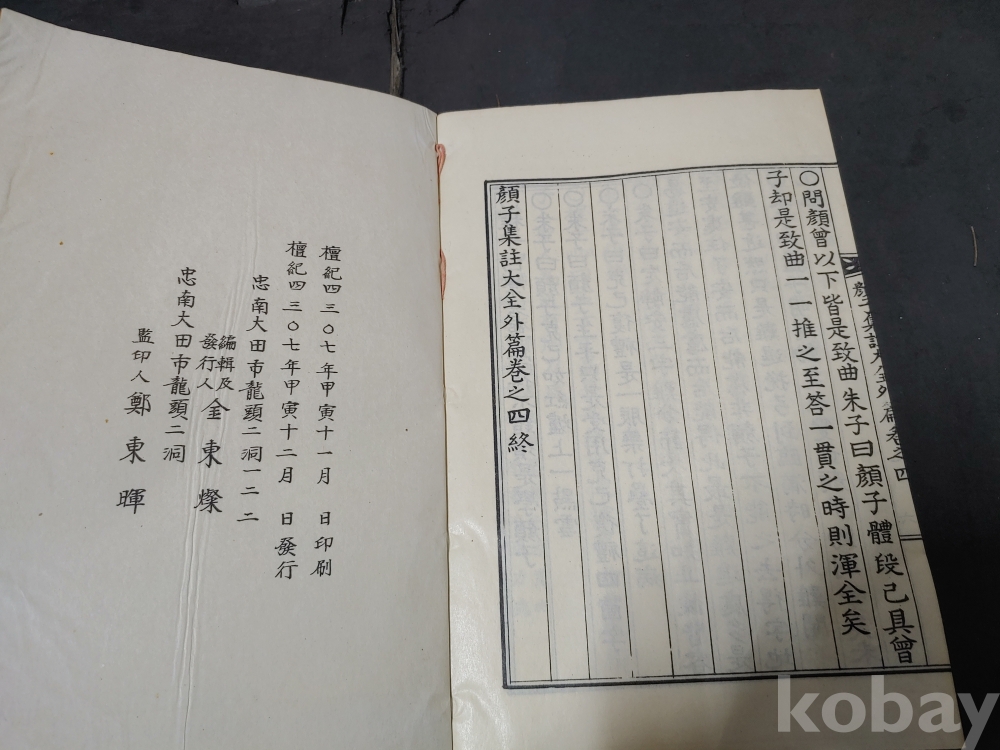 〇問顏曾以下皆是致曲朱子曰顏子體段已具曾
子却是致曲一一推之至答一貫之時則渾全矣
顏子集註大全外篇卷之四終
顏子集註大全外篇卷之四
檀紀四三〇七年甲寅十一月 日印刷
檀紀四三〇七年甲寅十二月 日發行
忠南大田市龍頭二洞一二二
編輯及發行人 金東燦
忠南大田市龍頭二洞
監印人 鄭東暉
kobay